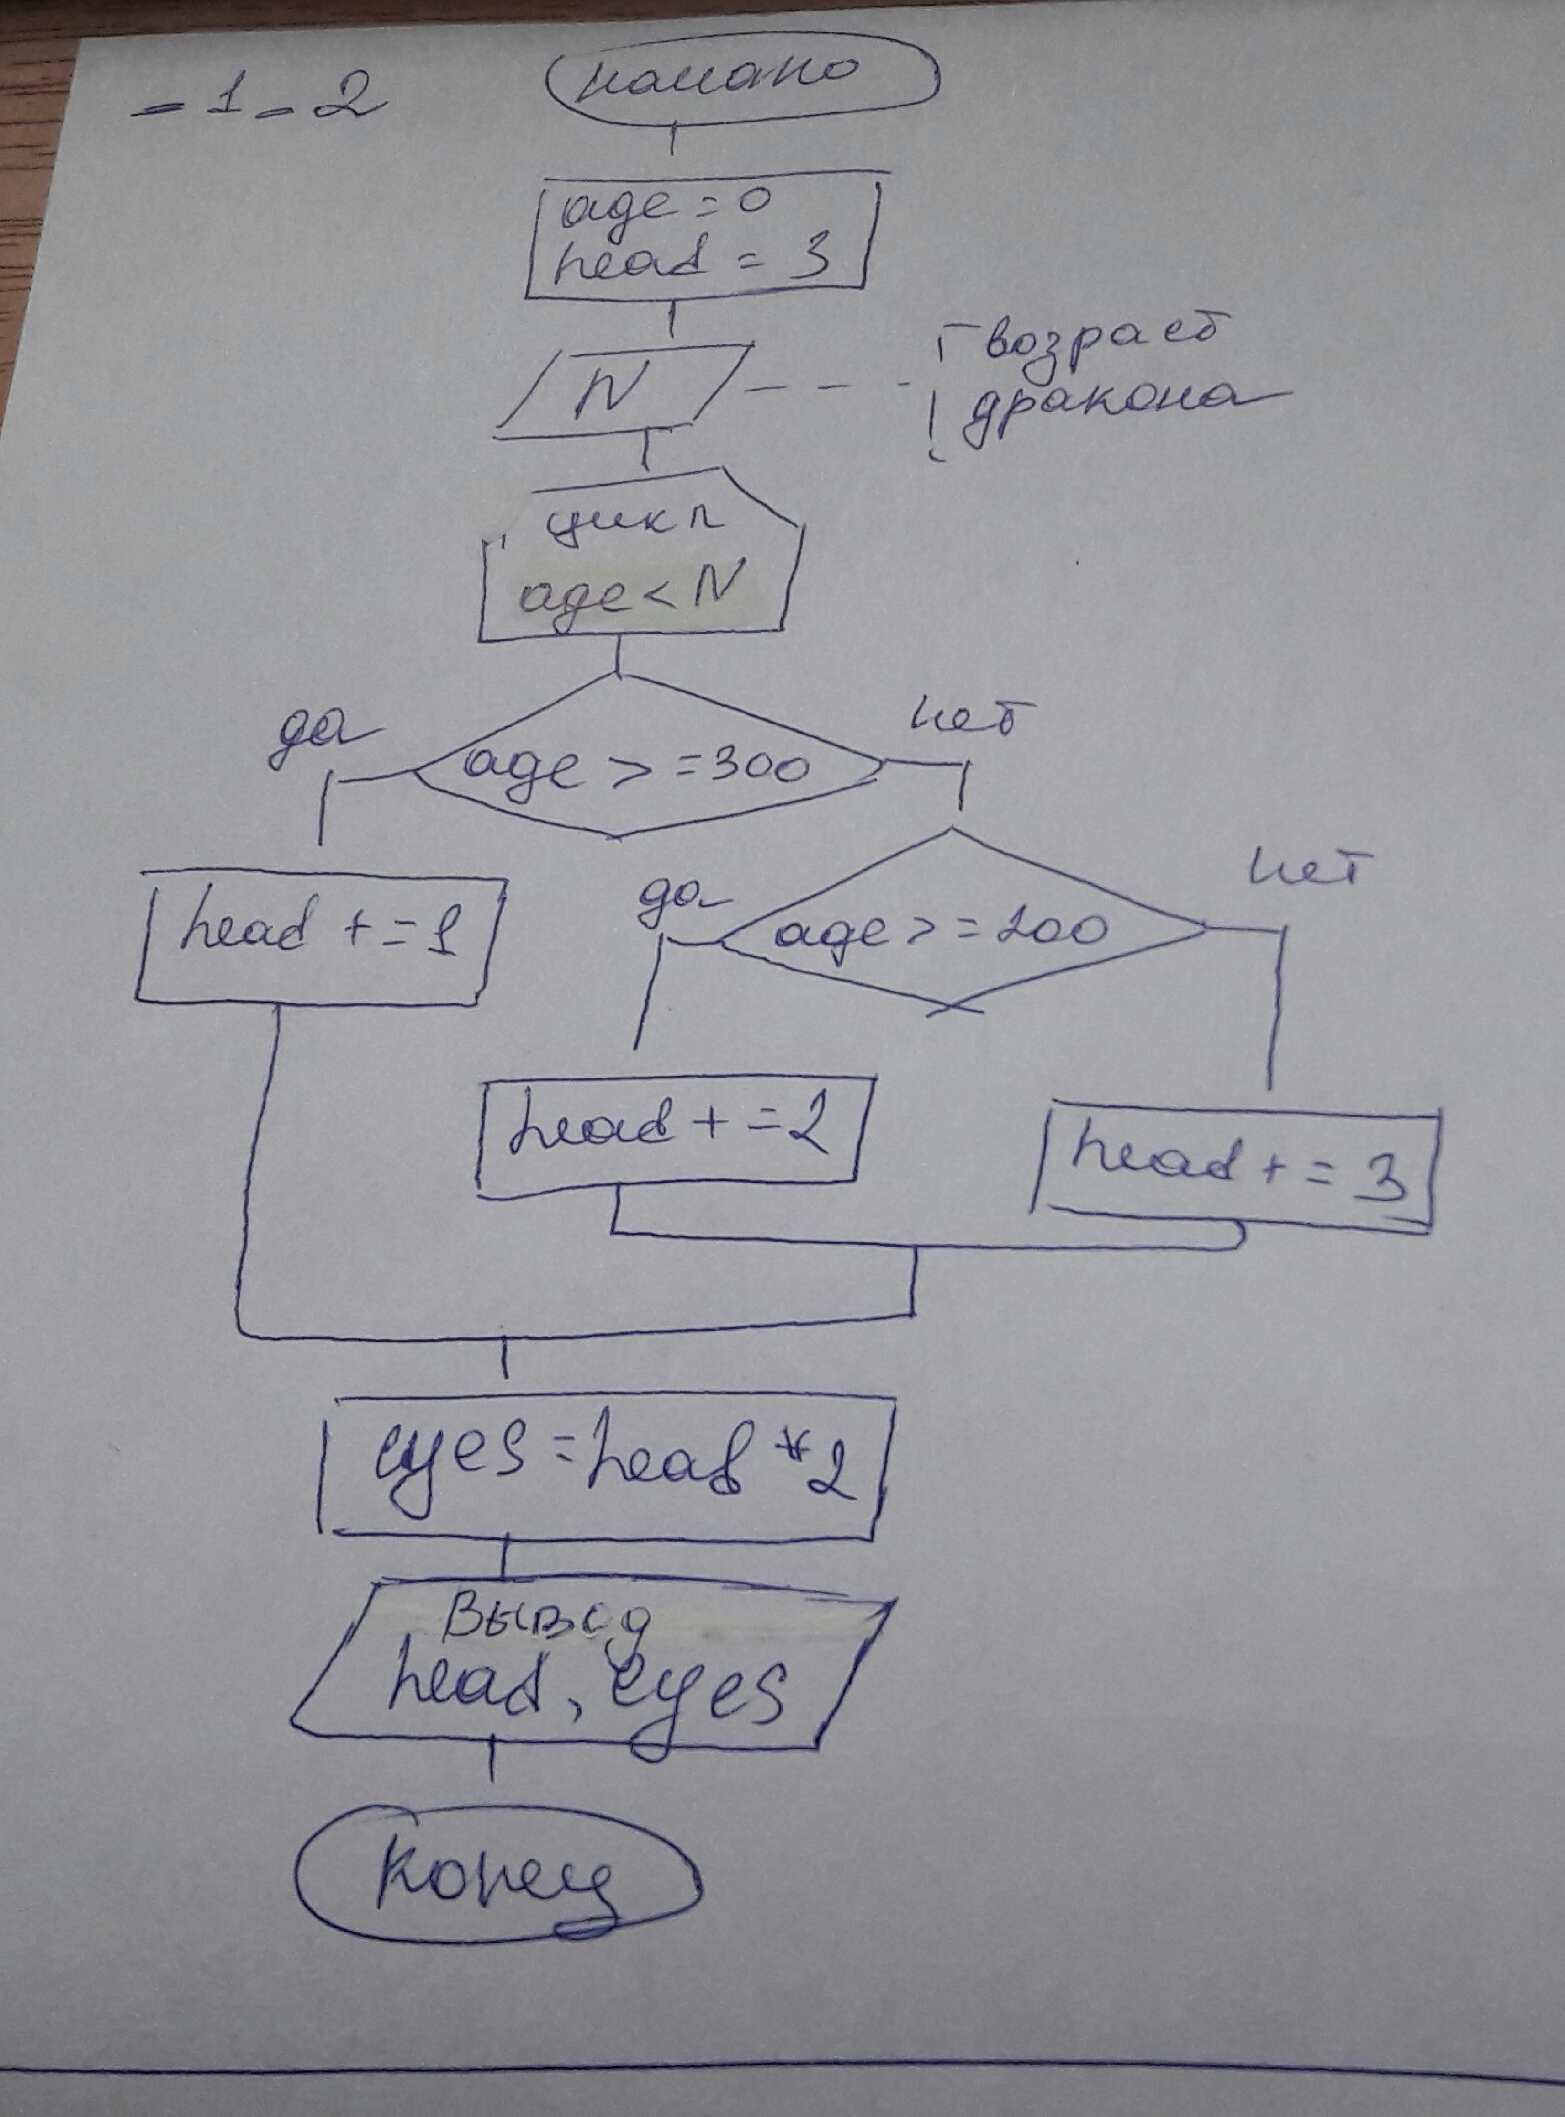 -1-2
начало
age = 0
head = 3
N
возраст
дракона
цикл
age < N
да
нет
age >= 300
head += 1
да
нет
age >= 200
head += 2
head += 3
eyes = head * 2
Вывод
head, eyes
Конец